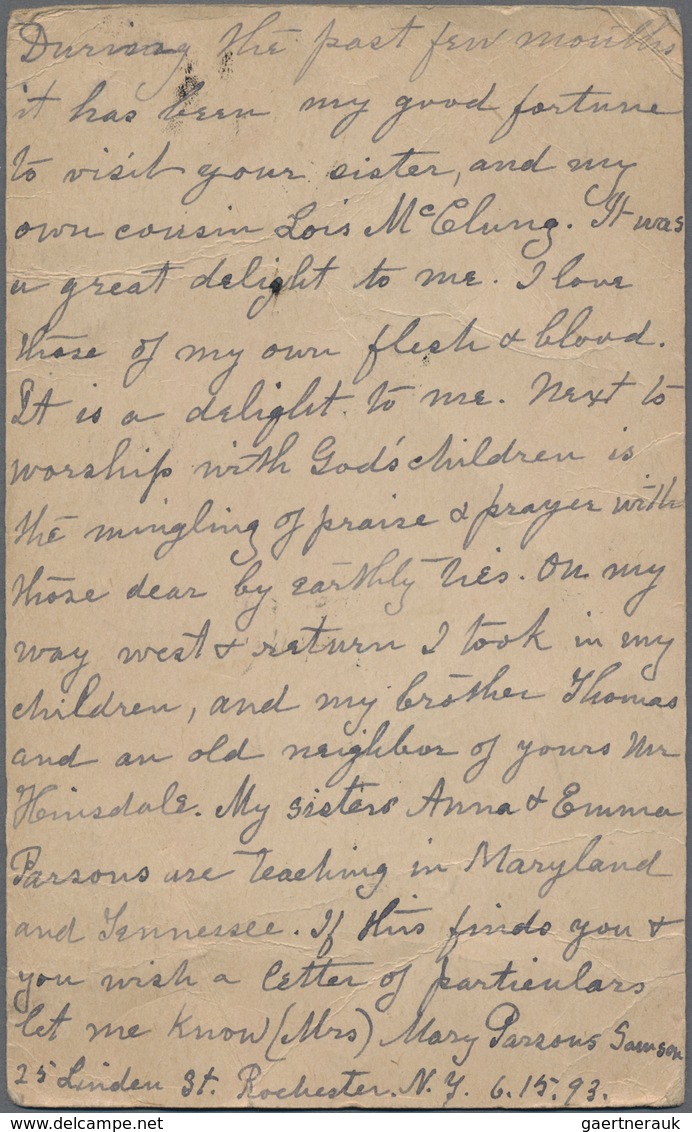 During the past few months
it has been my good fortune
to visit your sister, and my
own cousin Lois McClung. It was
a great delight to me. I love
those of my own flesh & blood.
It is a delight to me. Next to
worship with God's children is
the mingling of praise & prayer with
those dear by earthly ties. On my
way west & return I took in my
children, and my brother Thomas
and an old neighbor of yours Mr
Heinsdale. My sisters Anna & Emma
Parsons are teaching in Maryland
and Tennessee. If this finds you &
you wish a letter of particulars
let me know (Mrs) Mary Parsons Samson
25 Linden St. Rochester. N. Y. 6. 15. 93.
gaertnerauk